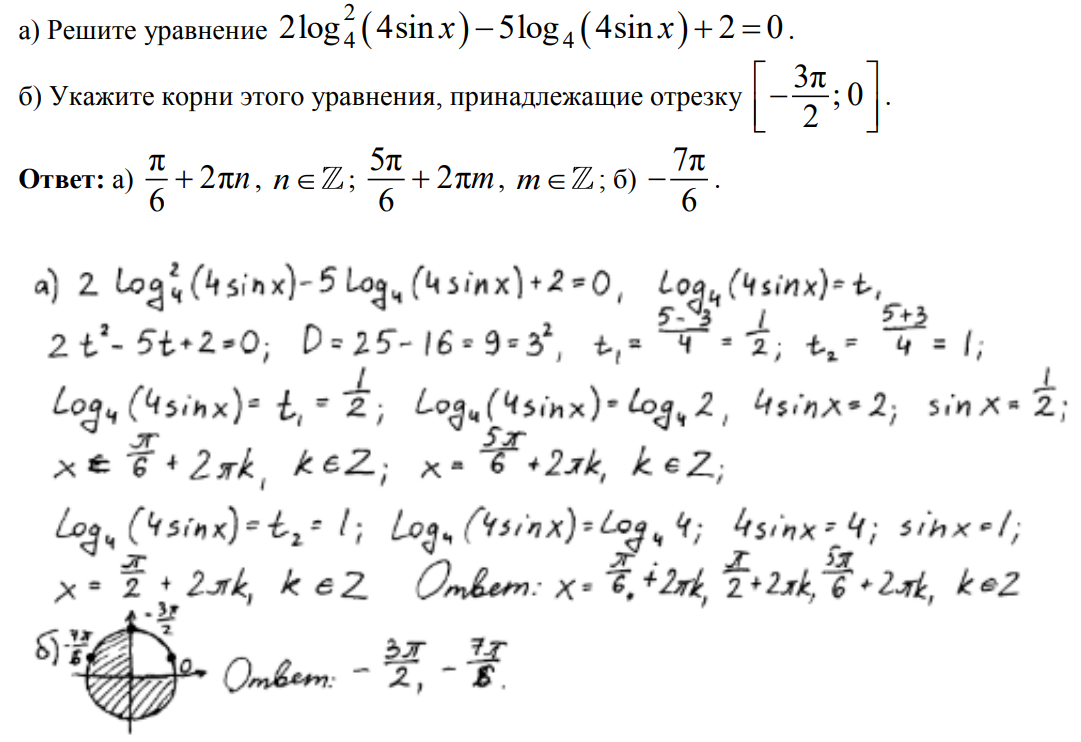 а) Решите уравнение 2log₄²(4sin x) − 5log₄(4sin x) + 2 = 0.
б) Укажите корни этого уравнения, принадлежащие отрезку [−3π/2; 0].
Ответ: а) π/6 + 2πn, n ∈ ℤ; 5π/6 + 2πm, m ∈ ℤ; б) −7π/6.
а) 2 Log₄²(4sinx)−5 Log₄(4sinx)+2=0, Log₄(4sinx)=t,
2t²−5t+2=0; D=25−16=9=3², t₁=(5−3)/4=1/2; t₂=(5+3)/4=1;
Log₄(4sinx)=t₁=1/2; Log₄(4sinx)=Log₄2, 4sinx=2; sinx=1/2;
x=π/6+2πk, k∈Z; x=5π/6+2πk, k∈Z;
Log₄(4sinx)=t₂=1; Log₄(4sinx)=Log₄4; 4sinx=4; sinx=1;
x=π/2+2πk, k∈Z Ответ: x=π/6+2πk, π/2+2πk, 5π/6+2πk, k∈Z
б) −7π/6 −3π/2 0 Ответ: −3π/2, −7π/6.